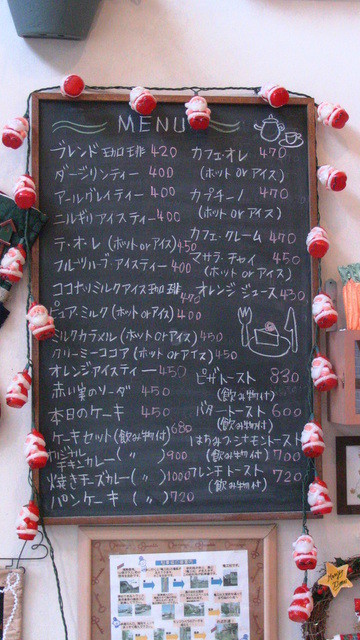 MENU
ブレンド珈琲 420
ダージリンティー 400
アールグレイティー 400
ニルギリアイスティー 400
テ・オ・レ (ホット or アイス) 450
フルーツハーブ・アイスティー 400
ココナッツミルクアイス珈琲 470
ピュア・ミルク (ホット or アイス) 400
ミルクカラメル (ホット or アイス) 450
クリーミーココア (ホット or アイス) 450
オレンジアイスティー 450
赤い実のソーダ 450
本日のケーキ 450
ケーキセット (飲み物付) 680
チキンカレー ( 〃 ) 900
焼きチーズカレー ( 〃 ) 1000
パンケーキ ( 〃 ) 720
カフェ・オレ 470
(ホット or アイス)
カプチーノ 470
(ホット or アイス)
カフェ・クレーム 470
マサラ・チャイ 450
(ホット or アイス)
オレンジジュース 430
ピザトースト 830
(飲み物付)
バタートースト 600
(飲み物付)
はちみつシナモントースト
(飲み物付) 700
フレンチトースト 720
(飲み物付)